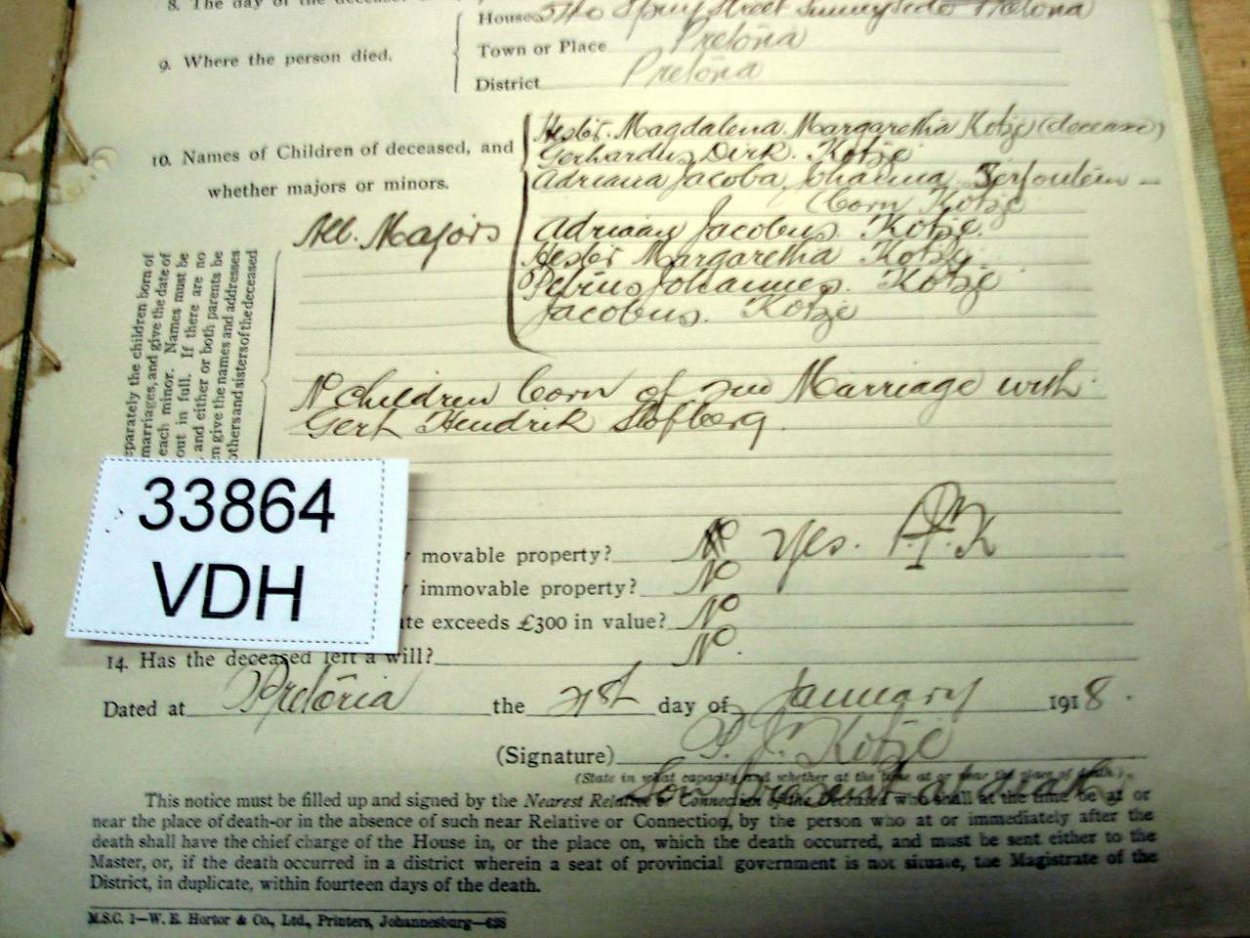 8. The day of the
House Street Sunnyside Pretoria
9. Where the person died.
Town or Place Pretoria
District Pretoria
10. Names of Children of deceased, and
whether majors or minors.
All Majors
Hester Magdalena Margaretha Kotzé (deceased)
Gerhardus Dirk. Kotzé
Adriana Jacoba Johanna
(born Kotzé
Adriaan Jacobus Kotzé.
Hester Margaretha Kotzé.
Petrus Johannes. Kotzé
Jacobus. Kotzé
eparately the children born of
marriages, and give the date of
each minor. Names must be
out in full. If there are no
and either or both parents be
en give the names and addresses
others and sisters of the deceased
No children born of 2nd Marriage with
Gert Hendrik Slofberg.
33864
VDH
movable property? No Yes. P.J.K
immovable property? No
ate exceeds £300 in value? No
14. Has the deceased left a will? No.
Dated at Pretoria the 21st day of January 1918.
(Signature) P. J. Kotzé
(State in what capacity and whether at the time at or near the place of death.)
Son Present at death
This notice must be filled up and signed by the Nearest Relative or Connection of the deceased who shall at the time be at or
near the place of death-or in the absence of such near Relative or Connection, by the person who at or immediately after the
death shall have the chief charge of the House in, or the place on, which the death occurred, and must be sent either to the
Master, or, if the death occurred in a district wherein a seat of provincial government is not situate, the Magistrate of the
District, in duplicate, within fourteen days of the death.
M.S.C. 1—W. E. Hortor & Co., Ltd., Printers, Johannesburg—